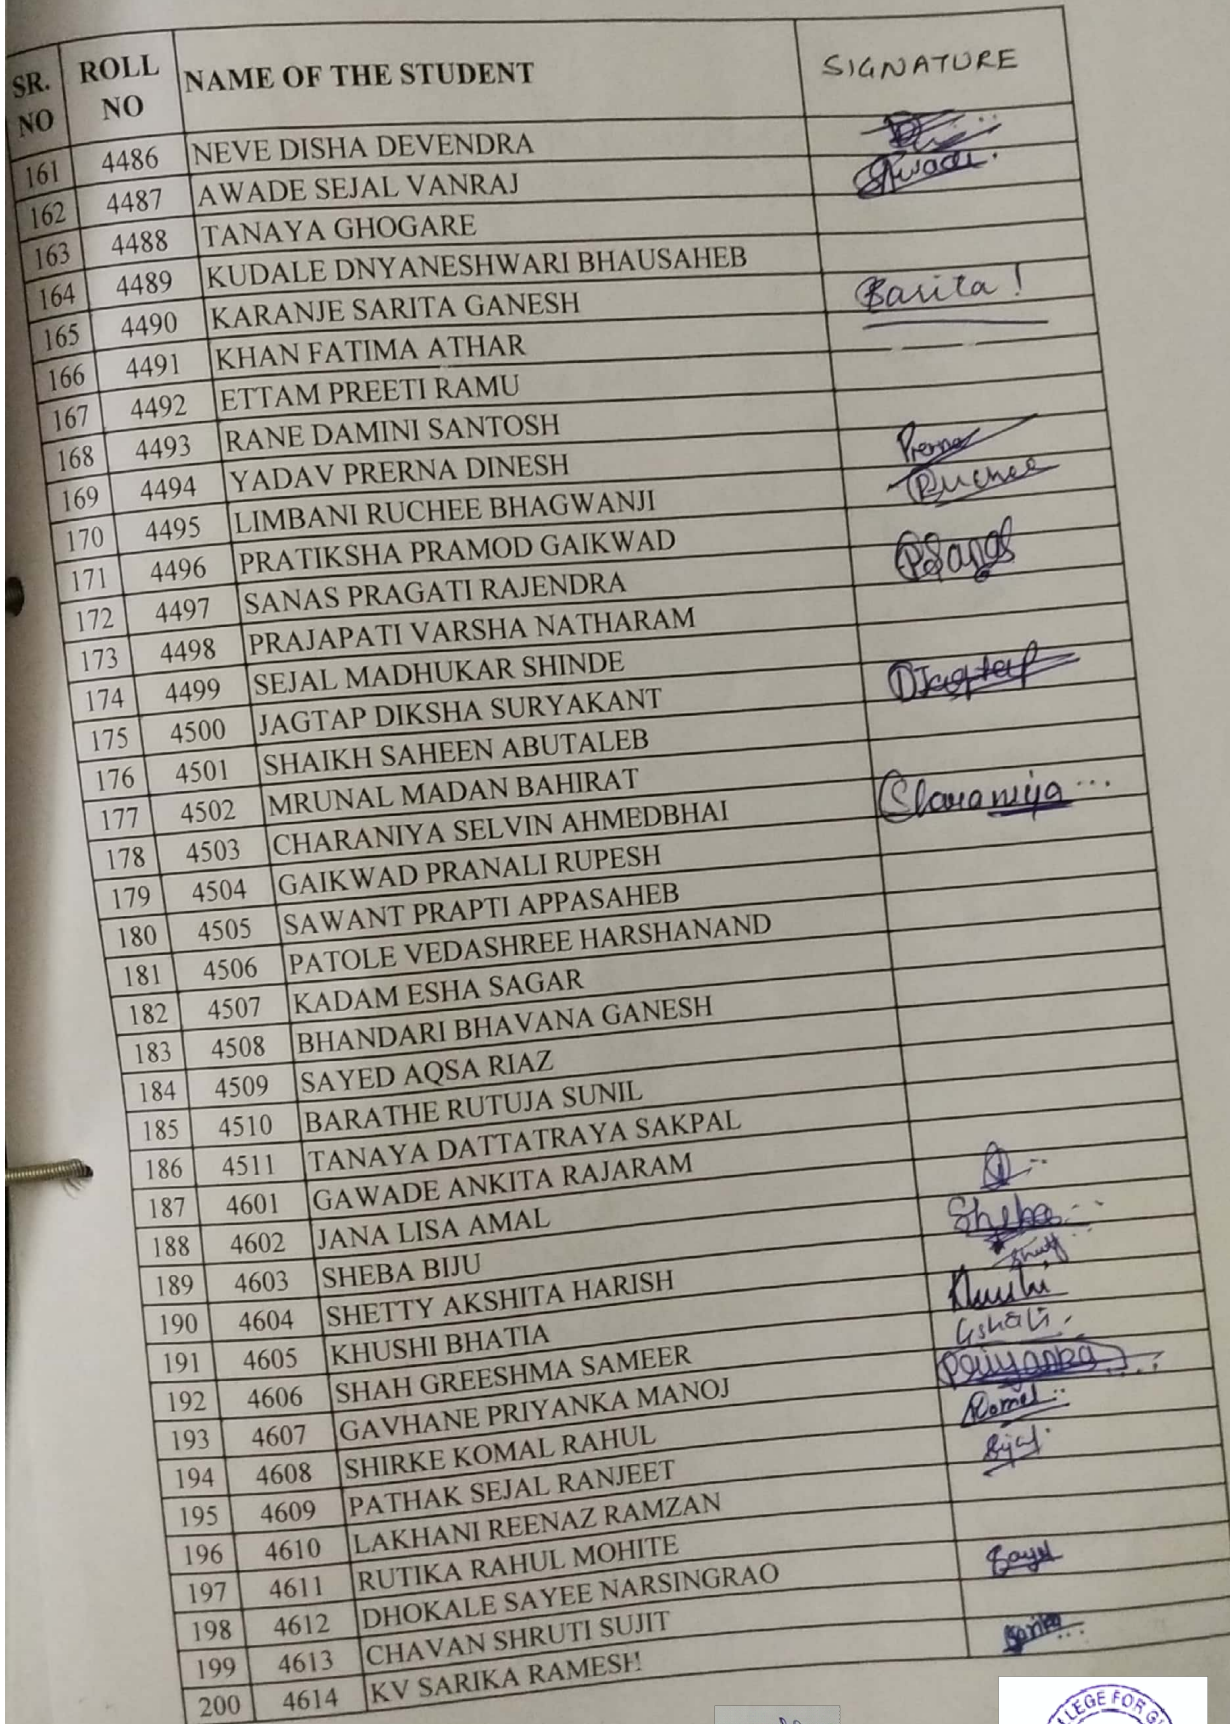 SR. NO ROLL NO NAME OF THE STUDENT SIGNATURE
161 4486 NEVE DISHA DEVENDRA
162 4487 AWADE SEJAL VANRAJ Awade
163 4488 TANAYA GHOGARE
164 4489 KUDALE DNYANESHWARI BHAUSAHEB
165 4490 KARANJE SARITA GANESH Sarita!
166 4491 KHAN FATIMA ATHAR
167 4492 ETTAM PREETI RAMU
168 4493 RANE DAMINI SANTOSH
169 4494 YADAV PRERNA DINESH Prerna
170 4495 LIMBANI RUCHEE BHAGWANJI Ruchee
171 4496 PRATIKSHA PRAMOD GAIKWAD
172 4497 SANAS PRAGATI RAJENDRA PSanas
173 4498 PRAJAPATI VARSHA NATHARAM
174 4499 SEJAL MADHUKAR SHINDE
175 4500 JAGTAP DIKSHA SURYAKANT DJagtap
176 4501 SHAIKH SAHEEN ABUTALEB
177 4502 MRUNAL MADAN BAHIRAT
178 4503 CHARANIYA SELVIN AHMEDBHAI Charaniya
179 4504 GAIKWAD PRANALI RUPESH
180 4505 SAWANT PRAPTI APPASAHEB
181 4506 PATOLE VEDASHREE HARSHANAND
182 4507 KADAM ESHA SAGAR
183 4508 BHANDARI BHAVANA GANESH
184 4509 SAYED AQSA RIAZ
185 4510 BARATHE RUTUJA SUNIL
186 4511 TANAYA DATTATRAYA SAKPAL
187 4601 GAWADE ANKITA RAJARAM
188 4602 JANA LISA AMAL
189 4603 SHEBA BIJU Sheba
190 4604 SHETTY AKSHITA HARISH
191 4605 KHUSHI BHATIA Khushi
192 4606 SHAH GREESHMA SAMEER
193 4607 GAVHANE PRIYANKA MANOJ Priyanka
194 4608 SHIRKE KOMAL RAHUL Komal
195 4609 PATHAK SEJAL RANJEET
196 4610 LAKHANI REENAZ RAMZAN
197 4611 RUTIKA RAHUL MOHITE
198 4612 DHOKALE SAYEE NARSINGRAO
199 4613 CHAVAN SHRUTI SUJIT
200 4614 KV SARIKA RAMESH Sarika
LEGE FOR G